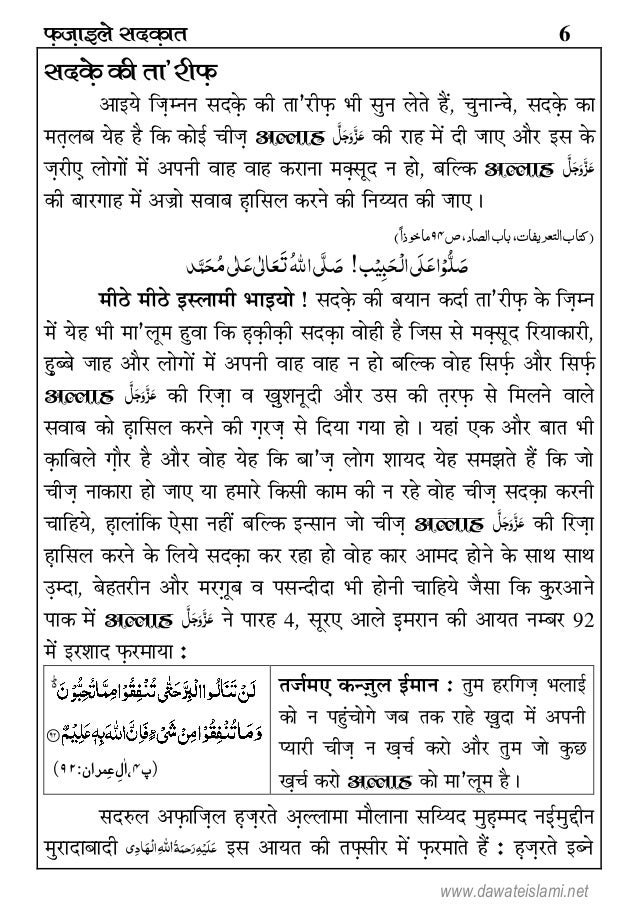 फ़ज़ाइले सदक़ात 6
सदक़े की ता'रीफ़
आइये ज़िम्नन सदक़े की ता'रीफ़ भी सुन लेते हैं, चुनान्चे, सदक़े का
मत़लब येह है कि कोई चीज़ अल्लाह عَزَّوَجَلَّ की राह में दी जाए और इस के
ज़रीए लोगों में अपनी वाह वाह कराना मक़्सूद न हो, बल्कि अल्लाह عَزَّوَجَلَّ
की बारगाह में अज्रो सवाब ह़ासिल करने की निय्यत की जाए ।
(کتاب التعریفات، باب الصاد، ص۹۴ماخوذاً)
صَلُّوْا عَلَى الْحَبِيْب! صَلَّى اللهُ تَعَالٰى عَلٰى مُحَمَّد
मीठे मीठे इस्लामी भाइयो ! सदक़े की बयान कर्दा ता'रीफ़ के ज़िम्न
में येह भी मा'लूम हुवा कि ह़क़ीक़ी सदक़ा वोही है जिस से मक़्सूद रियाकारी,
हु़ब्बे जाह और लोगों में अपनी वाह वाह न हो बल्कि वोह सिर्फ़ और सिर्फ़
अल्लाह عَزَّوَجَلَّ की रिज़ा व खु़शनूदी और उस की त़रफ़ से मिलने वाले
सवाब को ह़ासिल करने की ग़रज़ से दिया गया हो । यहां एक और बात भी
क़ाबिले ग़ौर है और वोह येह कि बा'ज़ लोग शायद येह समझते हैं कि जो
चीज़ नाकारा हो जाए या हमारे किसी काम की न रहे वोह चीज़ सदक़ा करनी
चाहिये, ह़ालांकि ऐसा नहीं बल्कि इन्सान जो चीज़ अल्लाह عَزَّوَجَلَّ की रिज़ा
ह़ासिल करने के लिये सदक़ा कर रहा हो वोह कार आमद होने के साथ साथ
उ़म्दा, बेहतरीन और मरग़ूब व पसन्दीदा भी होनी चाहिये जैसा कि कु़रआने
पाक में अल्लाह عَزَّوَجَلَّ ने पारह 4, सूरए आले इ़मरान की आयत नम्बर 92
में इरशाद फ़रमाया :
لَنْ تَنَالُوا الْبِرَّ حَتّٰى تُنْفِقُوْا مِمَّا تُحِبُّوْنَ ۬ؕ
وَ مَا تُنْفِقُوْا مِنْ شَیْءٍ فَاِنَّ اللّٰهَ بِهٖ عَلِیْمٌ ﴿۹۲﴾
(پ۴، اٰلِ عِمران: ۹۲)
तर्जमए कन्ज़ुल ईमान : तुम हरगिज़ भलाई
को न पहुंचोगे जब तक राहे खु़दा में अपनी
प्यारी चीज़ न ख़र्च करो और तुम जो कुछ
ख़र्च करो अल्लाह को मा'लूम है ।
सदरुल अफ़ाज़िल ह़ज़रते अ़ल्लामा मौलाना सय्यिद मुह़म्मद नई़मुद्दीन
मुरादाबादी عَلَیْهِ رَحْمَةُ اللهِ الْهَادِی इस आयत की तफ़्सीर में फ़रमाते हैं : ह़ज़रते इब्ने
www.dawateislami.net